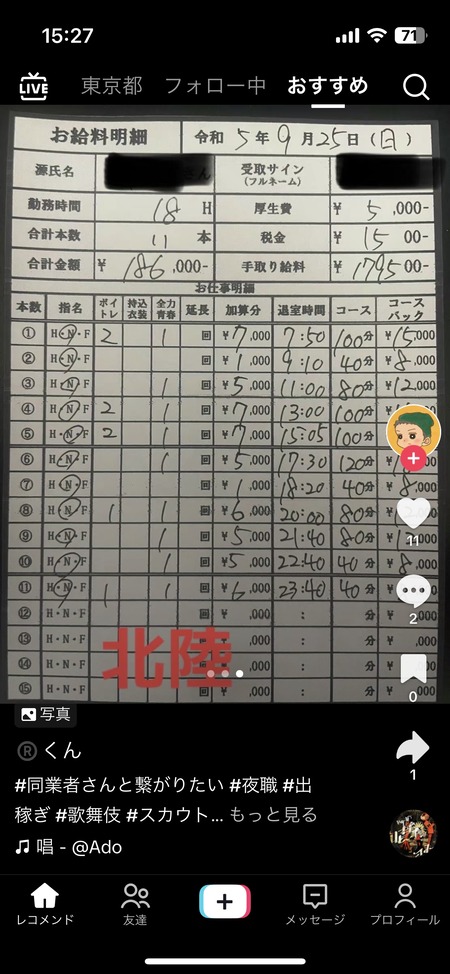 15:27
71
LIVE 東京都 フォロー中 おすすめ
お給料明細 令和 5年 9月25日(日)
源氏名 受取サイン
(フルネーム)
勤務時間 18 H 厚生費 ¥ 5,000-
合計本数 11 本 税金 ¥ 1500-
合計金額 ¥ 186,000- 手取り給料 ¥ 179500-
お仕事明細
本数 指名 ボイトレ 持込衣装 全力青春 延長 加算分 退室時間 コース コースバック
① H・N・F 2 1 回 ¥7,000 7:50 100分 ¥15,000
② H・N・F 回 ¥1,000 9:10 40分 ¥8,000
③ H・N・F 1 回 ¥5,000 11:00 80分 ¥12,000
④ H・N・F 2 1 回 ¥7,000 13:00 100分
⑤ H・N・F 2 1 回 ¥7,000 15:05 100分
⑥ H・N・F 1 回 ¥5,000 17:30 120分
⑦ H・N・F 回 ¥1,000 18:20 40分 ¥8,000
⑧ H・N・F 1 1 回 ¥6,000 20:00 80分
⑨ H・N・F 1 回 ¥5,000 21:40 80分
⑩ H・N・F 1 回 ¥5,000 22:40 40分 ¥8,000
⑪ H・N・F 1 1 回 ¥6,000 23:40 40分
⑫ H・N・F 回 ¥ ,000 : 分 ¥ ,000
⑬ H・N・F 回 ¥ ,000 : 分 ¥ ,000
⑭ H・N・F 回 ¥ ,000 : 分 ¥ ,000
⑮ H・N・F 回 ¥ ,000 : 分 ¥ ,000
北陸
11
2
0
1
写真
Ⓡくん
#同業者さんと繋がりたい #夜職 #出
稼ぎ #歌舞伎 #スカウト... もっと見る
唱 - @Ado
レコメンド 友達 メッセージ プロフィール